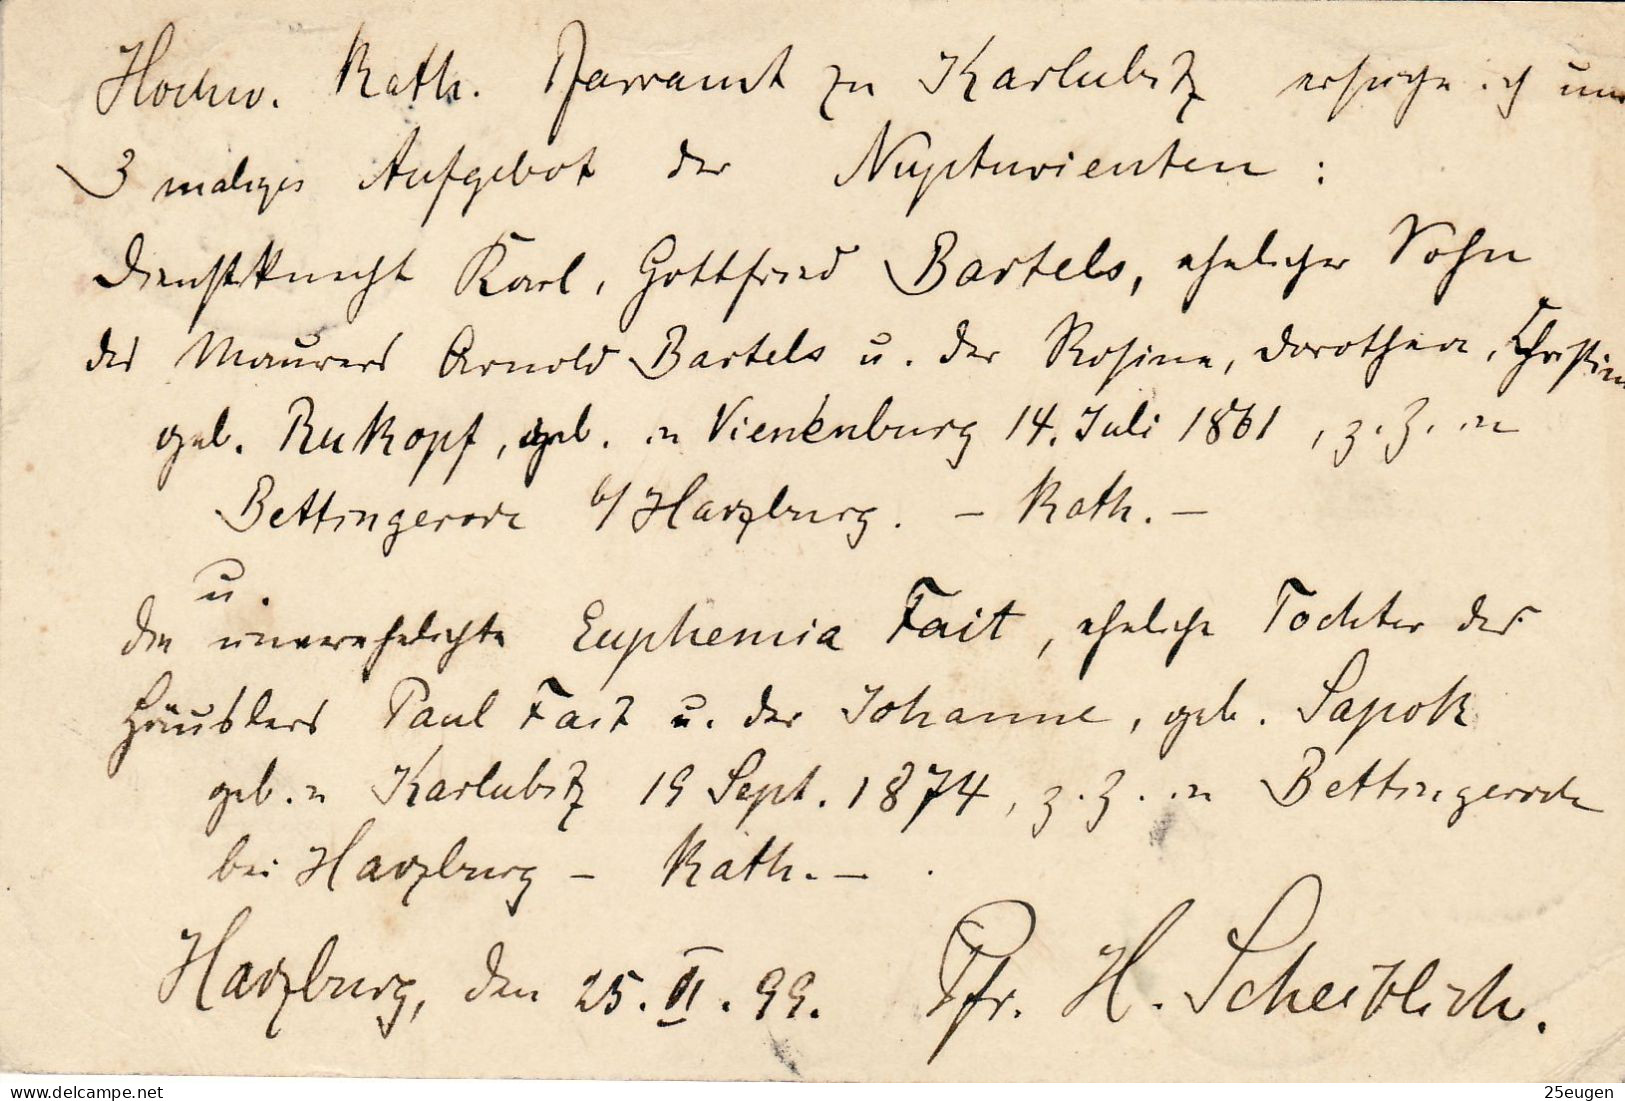 Hochw. Kath. Pfarramt zu Karlubitz ersuche ich um
3 maliges Aufgebot der Nupturienten :
Dienstknecht Karl, Gottfried Bartels, ehelicher Sohn
des Maurers Arnold Bartels u. der Rosine, Dorothea, Christine
geb. Rukopf, geb. in Vienenburg 14. Juli 1861, z. Z. in
Bettingerode b/ Harzburg. – Kath. –
u.
die unverehelichte Euphemia Fait, eheliche Tochter des
Häuslers Paul Fait u. der Johanne, geb. Sapok
geb. in Karlubitz 19 Sept. 1874, z. Z. in Bettingerode
bei Harzburg – Kath. – .
Harzburg, den 25. II. 99. Pfr. H. Scheiblich.
delcampe.net
25eugen